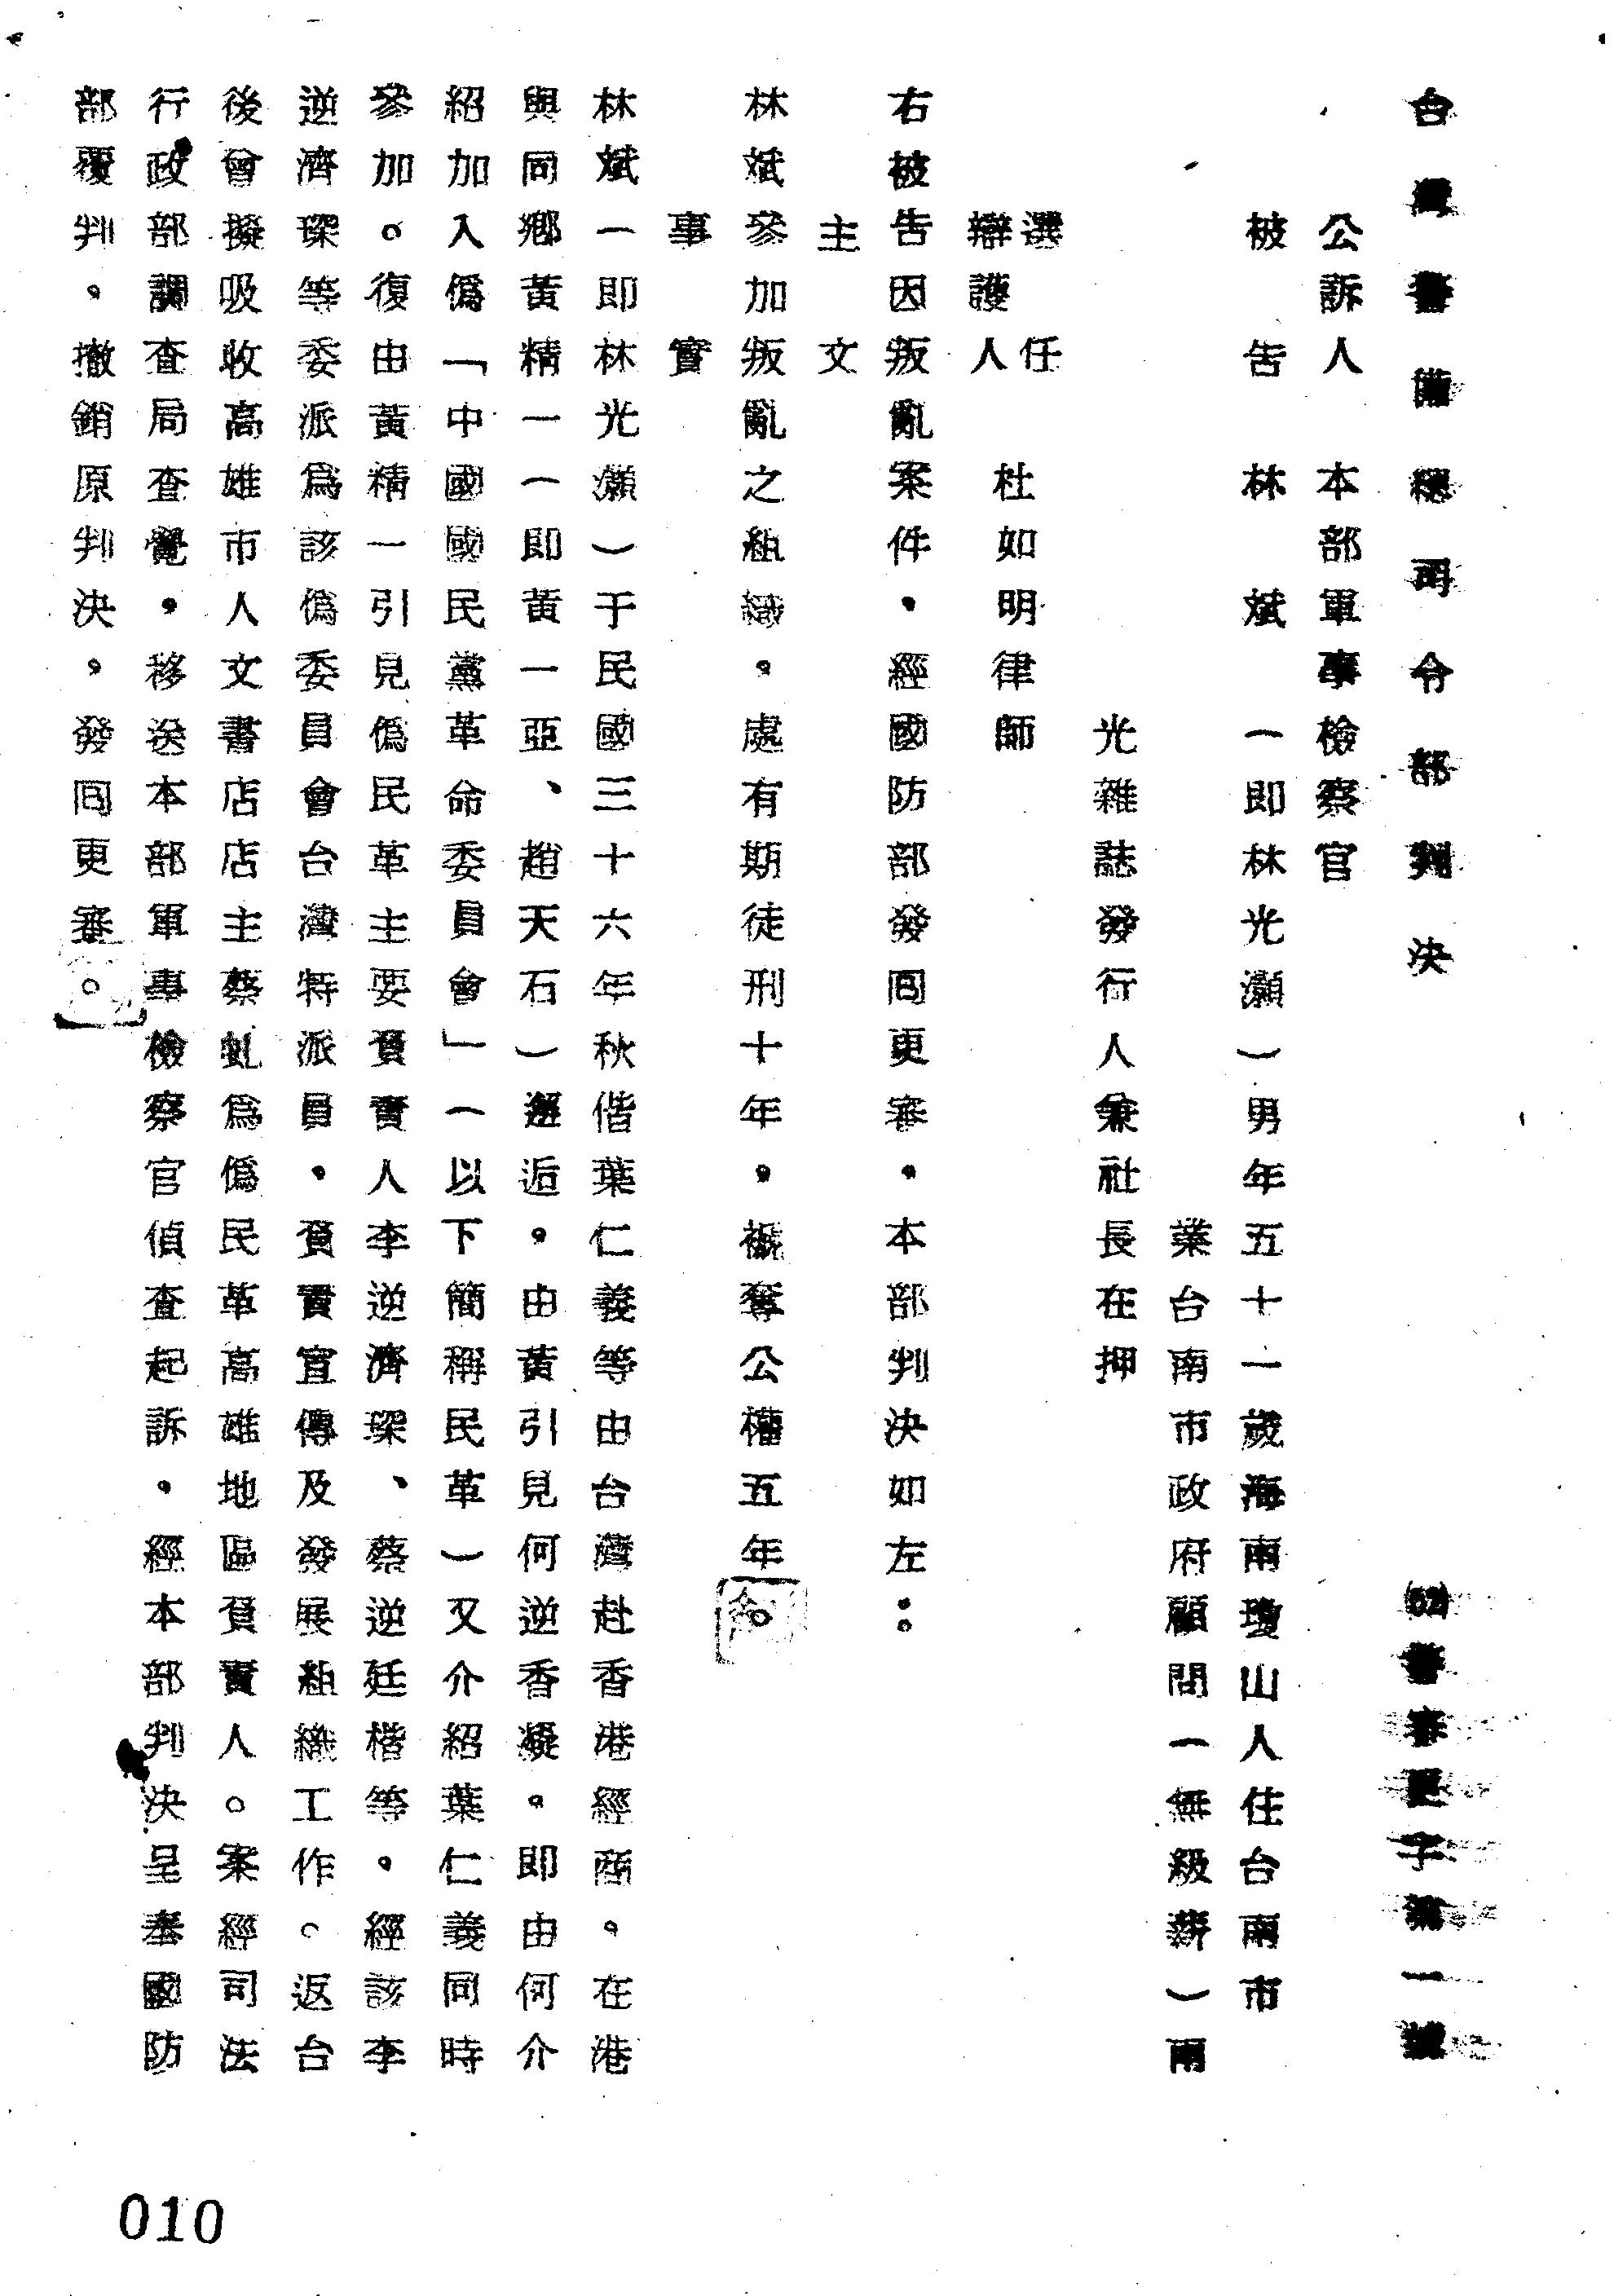 台灣警備總司令部判決
(52)警審更字第一號
公訴人 本部軍事檢察官
被告 林斌(即林光灝)男年五十一歲海南瓊山人住台南市
業台南市政府顧問(無級薪)兩
光雜誌發行人兼社長在押
選任
辯護人 杜如明律師
右被告因叛亂案件,經國防部發回更審,本部判決如左:
主文
林斌參加叛亂之組織,處有期徒刑十年,褫奪公權五年。
事實
林斌(即林光灝)于民國三十六年秋偕葉仁義等由台灣赴香港經商,在港
與同鄉黃精一(即黃一亞、趙天石)邂逅,由黃引見何逆香凝,即由何介
紹加入偽「中國國民黨革命委員會」(以下簡稱民革)又介紹葉仁義同時
參加。復由黃精一引見偽民革主要負責人李逆濟琛、蔡逆廷楷等,經該李
逆濟琛等委派為該偽委員會台灣特派員,負責宣傳及發展組織工作。返台
後會擬吸收高雄市人文書店店主蔡虬為偽民革高雄地區負責人。案經司法
行政部調查局查覺,移送本部軍事檢察官偵查起訴,經本部判決呈奉國防
部覆判,撤銷原判決,發回更審。
010